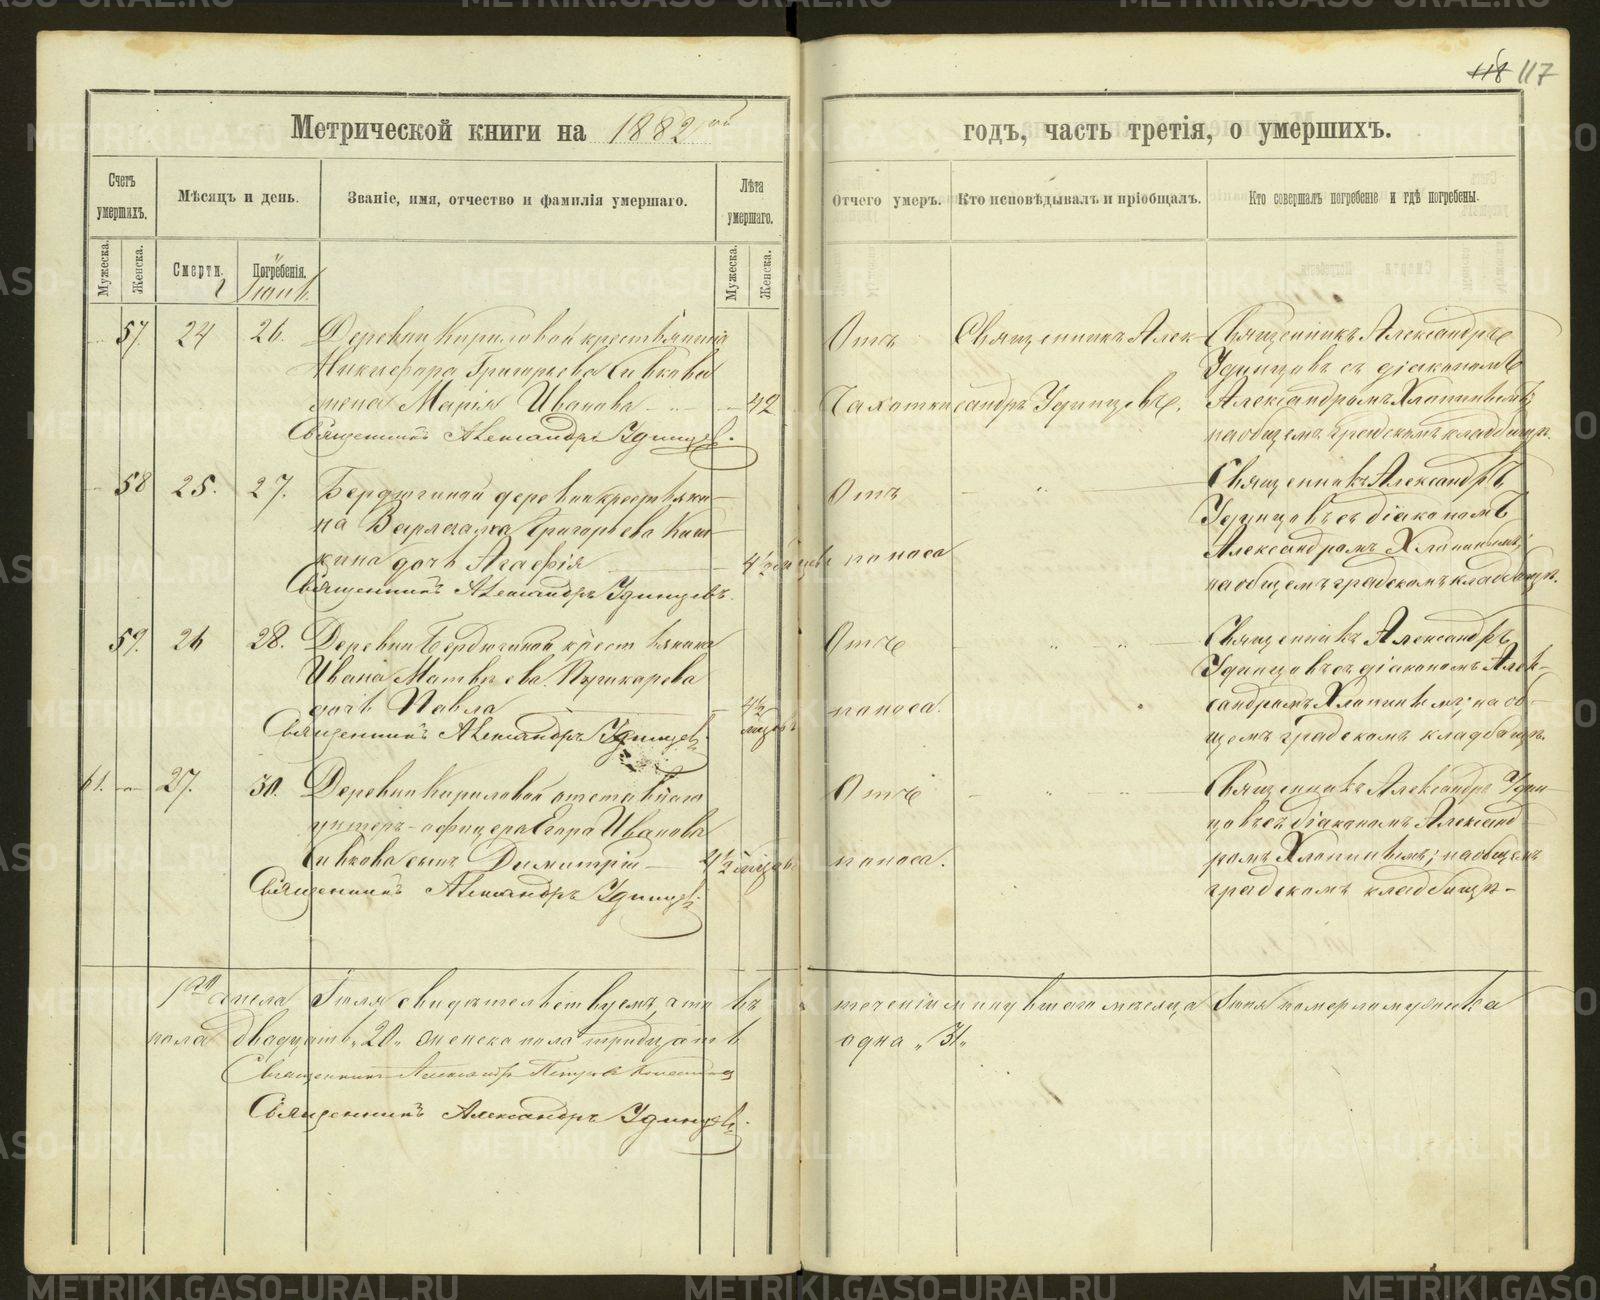 118 117
Метрической книги на 1882ой годъ, часть третія, о умершихъ.
Счетъ умершихъ.
Мѣсяцъ и день.
Званіе, имя, отчество и фамилія умершаго.
Лѣта умершаго.
Отчего умеръ.
Кто исповѣдывалъ и пріобщалъ.
Кто совершалъ погребеніе и гдѣ погребены.
Мужеска.
Женска.
Смерти.
Погребенія.
Мужеска.
Женска.
Іюнь
57 24 26.
Деревни Кириловой крестьянина
Никифора Григорьева Сивкова
жена Марія Иванова 42
Священникъ Александръ Удинцевъ.
Отъ
Чахотки
Священникъ Алек-
сандръ Удинцевъ.
Священникъ Александръ
Удинцовъ съ діакономъ
Александромъ Хлопинымъ;
на общемъ градскомъ кладбищѣ.
58 25. 27.
Бердюгиной деревни крестьяни-
на Варлаама Григорьева
дочь Агафія 4½
Священникъ Александръ Удинцевъ.
Отъ
поноса
Священникъ Александръ
Удинцовъ съ діакономъ
Александромъ Хлопинымъ;
на общемъ градскомъ кладбищѣ.
59. 26 28.
Деревни Бердюгиной крестьянина
Ивана Матвѣева Пушкарева
дочь Павла 4½
мѣсяцъ
Священникъ Александръ Удинцевъ
Отъ
поноса.
Священникъ Александръ
Удинцовъ съ діакономъ Алек-
сандромъ Хлопинымъ; на об-
щемъ градскомъ кладбищѣ.
61. 27. 30.
Деревни Кириловой отставнаго
унтеръ-офицера Егора Иванова
Сивкова сынъ Димитрій 4½
Священникъ Александръ Удинцевъ
Отъ
поноса.
Священникъ Александръ Удин-
цовъ съ діакономъ Александ-
ромъ Хлопинымъ; на общемъ
градскомъ кладбищѣ.
1го числа Іюля свидѣтельствуемъ, что въ теченіи минувшаго мѣсяца Іюня померло мужеска
пола двадцать „20„ женска пола тридцать одна „31„
Священникъ Александръ
Священникъ Александръ Удинцевъ
METRIKI.GASO-URAL.RU